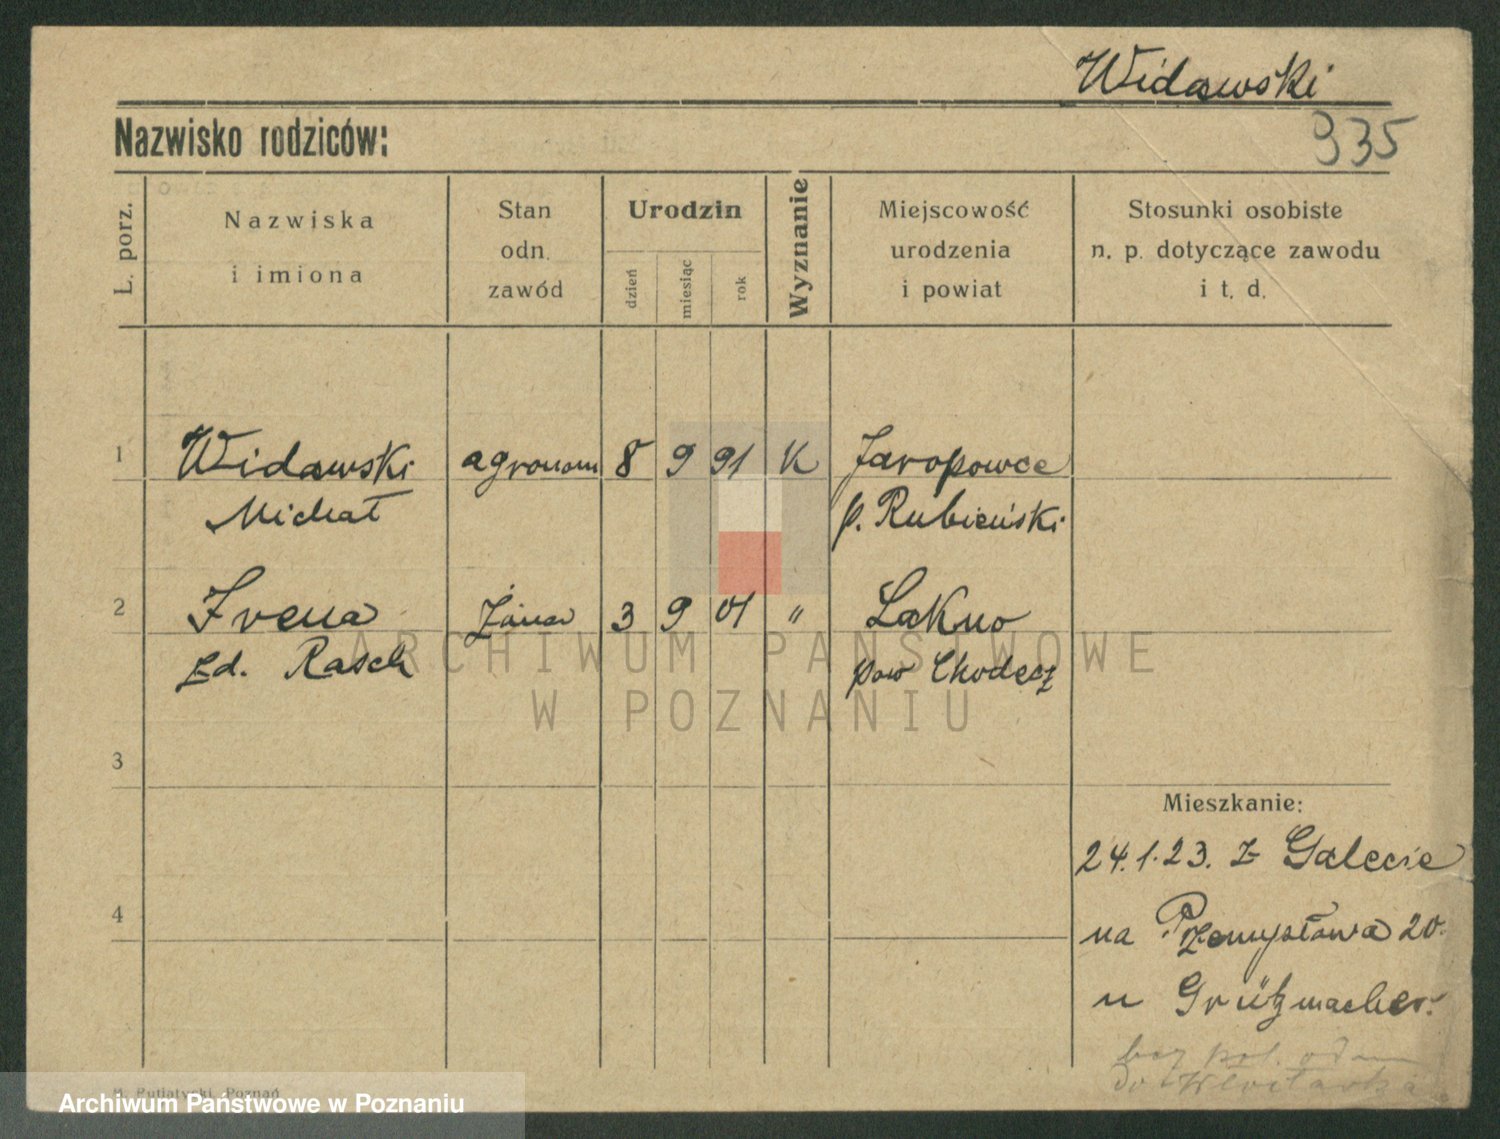 Widawski
Nazwisko rodziców:
935
L. porz.
Nazwiska
i imiona
Stan
odn.
zawód
Urodzin
dzień
miesiąc
rok
Wyznanie
Miejscowość
urodzenia
i powiat
Stosunki osobiste
n. p. dotyczące zawodu
i t. d.
1 Widawski agronom 8 9 91 K Jaropowce
Michał p. Rubieński
2 Irena żona 3 9 01 " Łakno
zd. Rasch pow Chodecz
3
Mieszkanie:
24.1.23. z Galecie
4
na Przemysłowa 20.
u Grützmacher.
do Włocławka
ARCHIWUM PAŃSTWOWE
W POZNANIU
Poznań
Archiwum Państwowe w Poznaniu